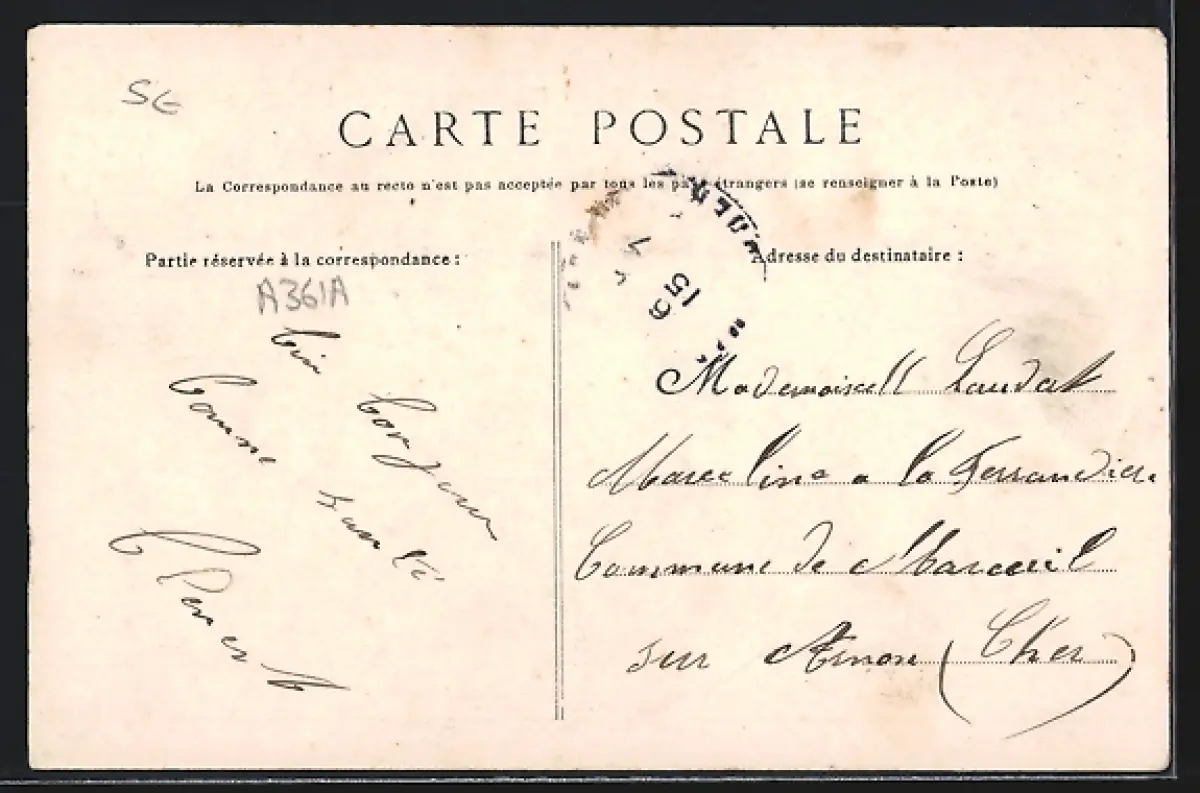 SG
CARTE POSTALE
La Correspondance au recto n'est pas acceptée par tous les pays étrangers (se renseigner à la Poste)
Partie réservée à la correspondance :
A361A
bonjour
bonne santé
Adresse du destinataire :
15 9
Mademoisell Laudat
Marceline a la Ferrandier
Commune de Mareuil
sur Arnon (Cher)